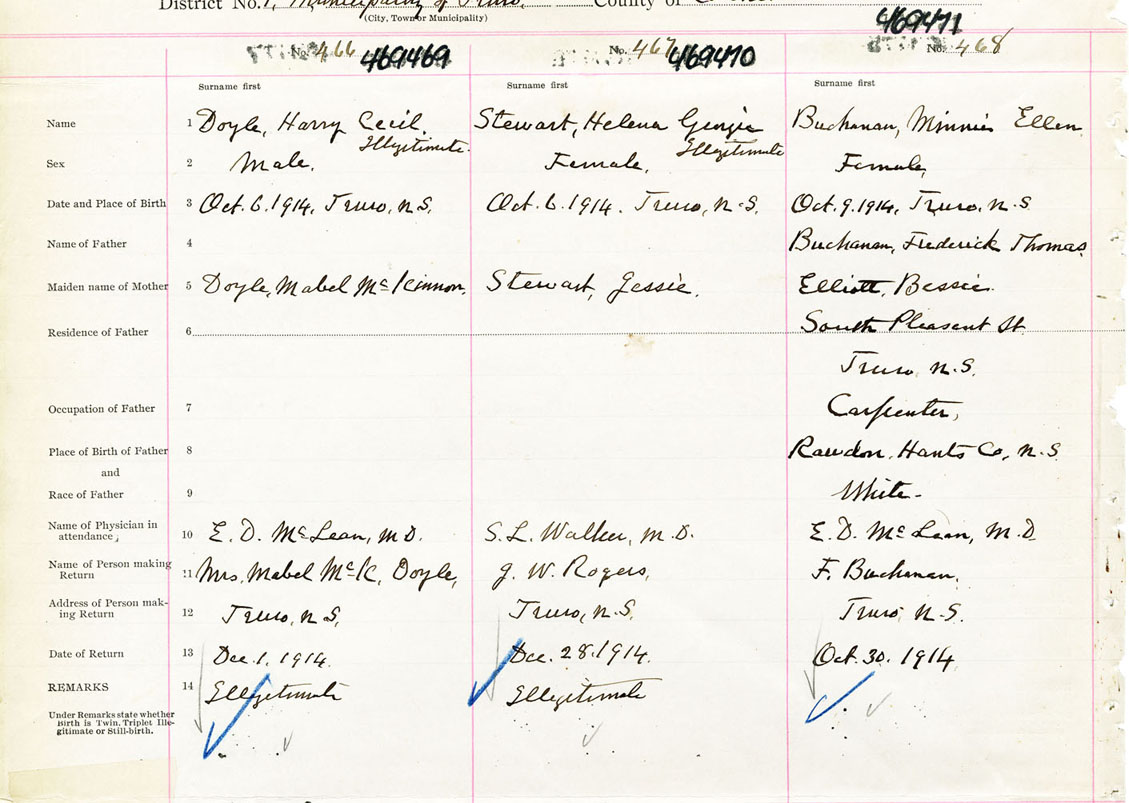 District No. 1, Municipality of Truro. County of
(City, Town or Municipality)
469471
No. 466 469469 No. 467 469470 No. 468
Surname first Surname first Surname first
Name 1 Doyle, Harry Cecil. Stewart, Helena Georgie Buchanan, Minnie Ellen
Illegitimate. Illegitimate
Sex 2 Male. Female, Female,
Date and Place of Birth 3 Oct. 6. 1914, Truro, N.S. Oct. 6. 1914. Truro, N.S. Oct. 9. 1914, Truro, N.S.
Name of Father 4 Buchanan, Frederick Thomas
Maiden name of Mother 5 Doyle, Mabel McKinnon, Stewart, Jessie, Elliott, Bessie
Residence of Father 6 South Pleasant St
Truro, N.S.
Occupation of Father 7 Carpenter,
Place of Birth of Father 8 Rawdon, Hants Co, N.S
and
Race of Father 9 White-
Name of Physician in
attendance; 10 E. D. McLean, M.D. S. L. Walker, M.D. E. D. McLean, M.D.
Name of Person making
Return 11 Mrs. Mabel McK, Doyle, J. W. Rogers, F. Buchanan,
Address of Person mak-
ing Return 12 Truro, N.S, Truro, N.S. Truro, N.S.
Date of Return 13 Dec. 1. 1914. Dec. 28. 1914. Oct. 30. 1914
REMARKS 14 Illegitimate Illegitimate
Under Remarks state whether
Birth is Twin, Triplet Ille-
gitimate or Still-birth.